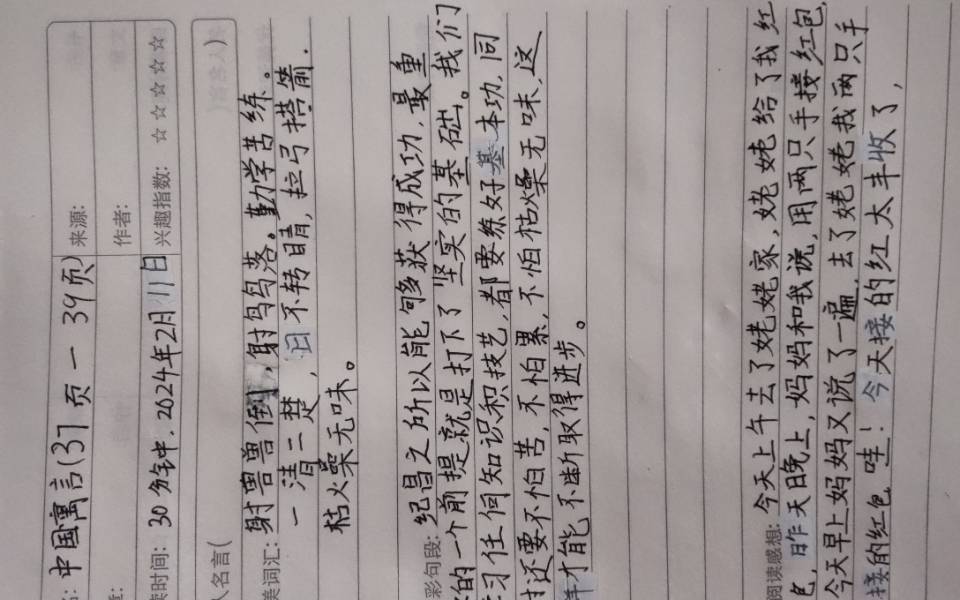 :中国寓言(37页一39页) 来源:
作者:
读时间:30分钟,2024年2月11日 兴趣指数:☆☆☆☆☆
人名言( )
美词汇:射兽兽倒,射鸟鸟落。勤学苦练。
一清二楚,目不转睛,拉弓搭箭.
枯燥无味。
彩句段:纪昌之所以能够获得成功,最重
的一个前提就是打下了坚实的基础。我们
习任何知识和技艺,都要练好基本功,同
时还要不怕苦,不怕累,不怕枯燥无味,这
样才能不断取得进步。
阅读感想:今天上午去了姥姥家,姥姥给了我红
包,昨天晚上,妈妈和我说,用两只手接红包,
今天早上妈妈又说了一遍,去了姥姥我两只手
接的红包,哇!今天接的红太丰收了,